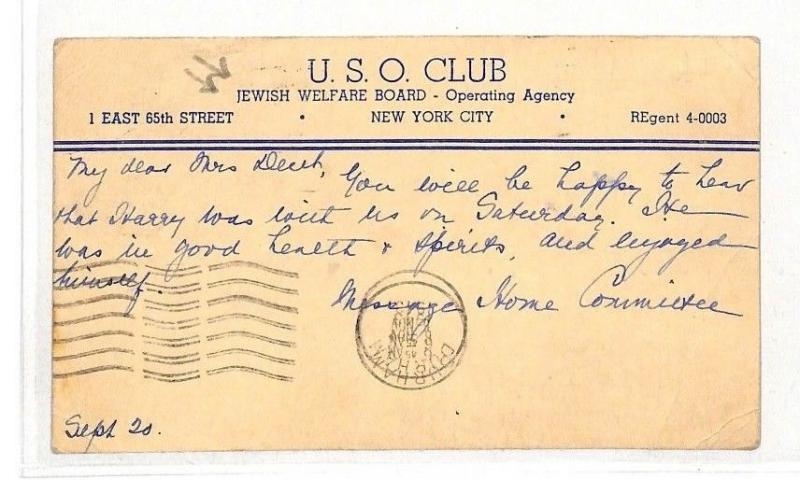 U. S. O. CLUB
JEWISH WELFARE BOARD - Operating Agency
1 EAST 65th STREET • NEW YORK CITY • REgent 4-0003
My dear Mrs Dent,
You will be happy to hear
that Harry was with us on Saturday. He
was in good health & spirits, and enjoyed
himself.
Message Home Committee
DURHAM
Sept 20.